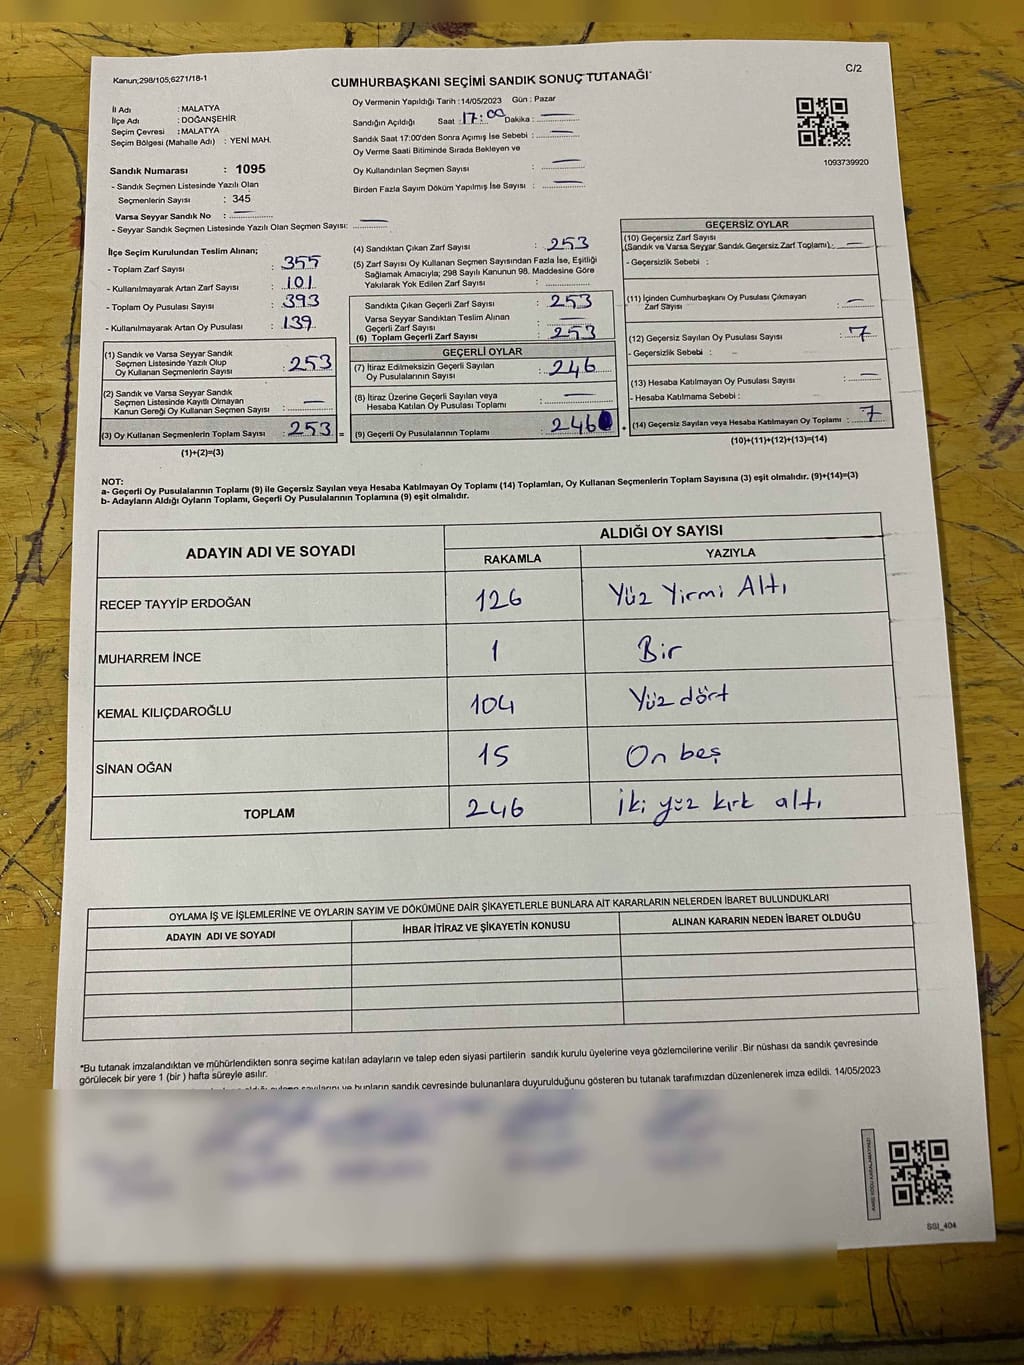 Kanun;298/105;6271/18-1
CUMHURBAŞKANI SEÇİMİ SANDIK SONUÇ TUTANAĞI*
C/2
İl Adı : MALATYA
İlçe Adı : DOĞANŞEHİR
Seçim Çevresi : MALATYA
Seçim Bölgesi (Mahalle Adı) : YENİ MAH.
Oy Vermenin Yapıldığı Tarih :14/05/2023 Gün : Pazar
Sandığın Açıldığı Saat : 17:00 Dakika : —
Sandık Saat 17:00'den Sonra Açımış İse Sebebi : —
Oy Verme Saati Bitiminde Sırada Bekleyen ve
Oy Kullandırılan Seçmen Sayısı : —
Birden Fazla Sayım Döküm Yapılmış İse Sayısı : —
1093739920
Sandık Numarası : 1095
- Sandık Seçmen Listesinde Yazılı Olan
Seçmenlerin Sayısı : 345
Varsa Seyyar Sandık No : —
- Seyyar Sandık Seçmen Listesinde Yazılı Olan Seçmen Sayısı: —
İlçe Seçim Kurulundan Teslim Alınan;
- Toplam Zarf Sayısı : 355
- Kullanılmayarak Artan Zarf Sayısı : 101
- Toplam Oy Pusulası Sayısı : 393
- Kullanılmayarak Artan Oy Pusulası : 139
(1) Sandık ve Varsa Seyyar Sandık
Seçmen Listesinde Yazılı Olup
Oy Kullanan Seçmenlerin Sayısı : 253
(2) Sandık ve Varsa Seyyar Sandık
Seçmen Listesinde Kayıtlı Olmayan
Kanun Gereği Oy Kullanan Seçmen Sayısı : —
(3) Oy Kullanan Seçmenlerin Toplam Sayısı : 253 =
(1)+(2)=(3)
(4) Sandıktan Çıkan Zarf Sayısı : 253
(5) Zarf Sayısı Oy Kullanan Seçmen Sayısından Fazla İse, Eşitliği
Sağlamak Amacıyla; 298 Sayılı Kanunun 98. Maddesine Göre
Yakılarak Yok Edilen Zarf Sayısı :
Sandıkta Çıkan Geçerli Zarf Sayısı : 253
Varsa Seyyar Sandıktan Teslim Alınan
Geçerli Zarf Sayısı : —
(6) Toplam Geçerli Zarf Sayısı : 253
GEÇERLİ OYLAR
(7) İtiraz Edilmeksizin Geçerli Sayılan
Oy Pusulalarının Sayısı : 246
(8) İtiraz Üzerine Geçerli Sayılan veya
Hesaba Katılan Oy Pusulası Toplamı : —
(9) Geçerli Oy Pusulalarının Toplamı : 246
GEÇERSİZ OYLAR
(10) Geçersiz Zarf Sayısı
(Sandık ve Varsa Seyyar Sandık Geçersiz Zarf Toplamı) : —
- Geçersizlik Sebebi :
(11) İçinden Cumhurbaşkanı Oy Pusulası Çıkmayan
Zarf Sayısı : —
(12) Geçersiz Sayılan Oy Pusulası Sayısı : 7
- Geçersizlik Sebebi :
(13) Hesaba Katılmayan Oy Pusulası Sayısı : —
- Hesaba Katılmama Sebebi :
(14) Geçersiz Sayılan veya Hesaba Katılmayan Oy Toplamı : 7
(10)+(11)+(12)+(13)=(14)
NOT:
a- Geçerli Oy Pusulalarının Toplamı (9) ile Geçersiz Sayılan veya Hesaba Katılmayan Oy Toplamı (14) Toplamları, Oy Kullanan Seçmenlerin Toplam Sayısına (3) eşit olmalıdır. (9)+(14)=(3)
b- Adayların Aldığı Oyların Toplamı, Geçerli Oy Pusulalarının Toplamına (9) eşit olmalıdır.
ADAYIN ADI VE SOYADI
ALDIĞI OY SAYISI
RAKAMLA YAZIYLA
RECEP TAYYİP ERDOĞAN 126 Yüz Yirmi Altı
MUHARREM İNCE 1 Bir
KEMAL KILIÇDAROĞLU 104 Yüz dört
SİNAN OĞAN 15 On beş
TOPLAM 246 İki yüz kırk altı
OYLAMA İŞ VE İŞLEMLERİNE VE OYLARIN SAYIM VE DÖKÜMÜNE DAİR ŞİKAYETLERLE BUNLARA AİT KARARLARIN NELERDEN İBARET BULUNDUKLARI
ADAYIN ADI VE SOYADI İHBAR İTİRAZ VE ŞİKAYETİN KONUSU ALINAN KARARIN NEDEN İBARET OLDUĞU
*Bu tutanak imzalandıktan ve mühürlendikten sonra seçime katılan adayların ve talep eden siyasi partilerin sandık kurulu üyelerine veya gözlemcilerine verilir .Bir nüshası da sandık çevresinde
görülecek bir yere 1 (bir ) hafta süreyle asılır.
ve bunların sandık çevresinde bulunanlara duyurulduğunu gösteren bu tutanak tarafımızdan düzenlenerek imza edildi. 14/05/2023
SSI_404